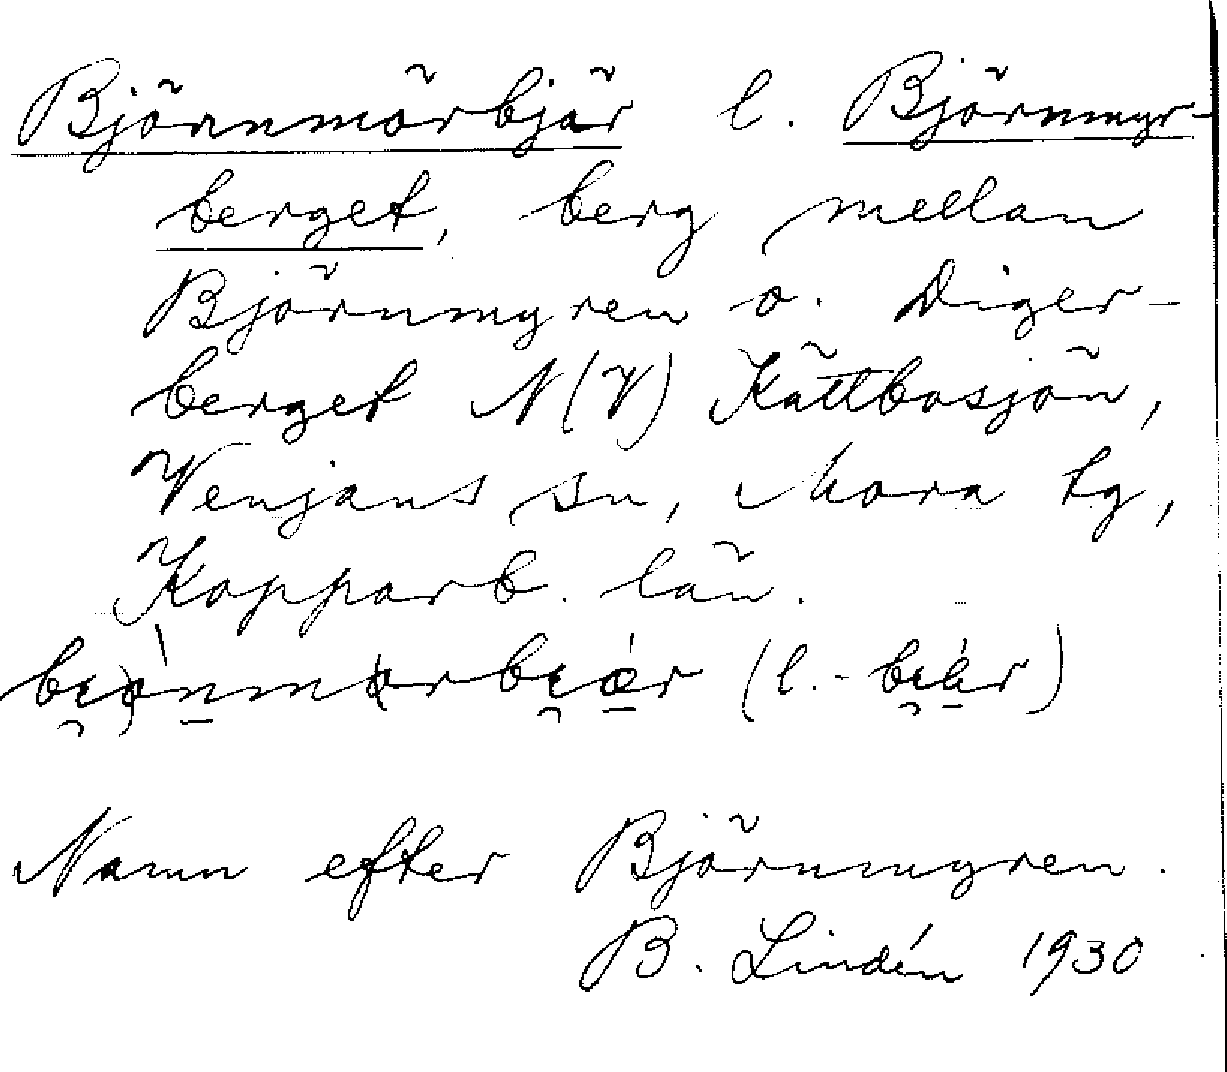 Björnmörbjär l. Björnmyr-
berget, berg mellan
Björnmyren o. Diger-
berget N(V) Kättbosjön,
Venjans sn, Mora tg,
Kopparb. län.
(l.
Namn efter Björnmyren.
B. Lindén 1930